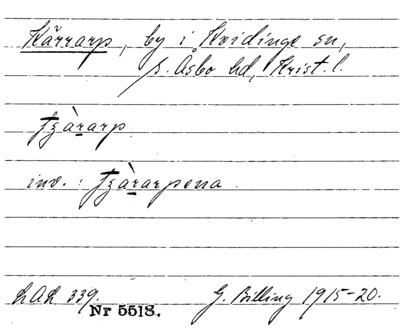 Kärrarp, by i Kvidinge sn,
s. Åsbo hd, Krist. l.
inv. :
LAL 339.
Nr 5513.
G. Billing 1915-20.